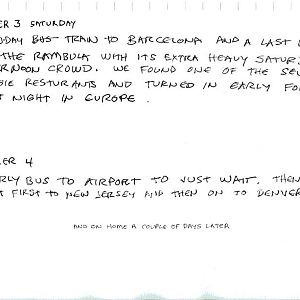 ER 3 SATURDAY
DAY BUS TRAIN TO BARCELONA AND A LAST
THE RAMBULA WITH ITS EXTRA HEAVY SATUR
ERNOON CROWD. WE FOUND ONE OF THE SE
GIE RESTURANTS AND TURNED IN EARLY FO
T NIGHT IN EUROPE.
ER 4
RLY BUS TO AIRPORT TO JUST WAIT. THEN
FIRST TO NEW JERSEY AND THEN ON TO DENVER
AND ON HOME A COUPLE OF DAYS LATER